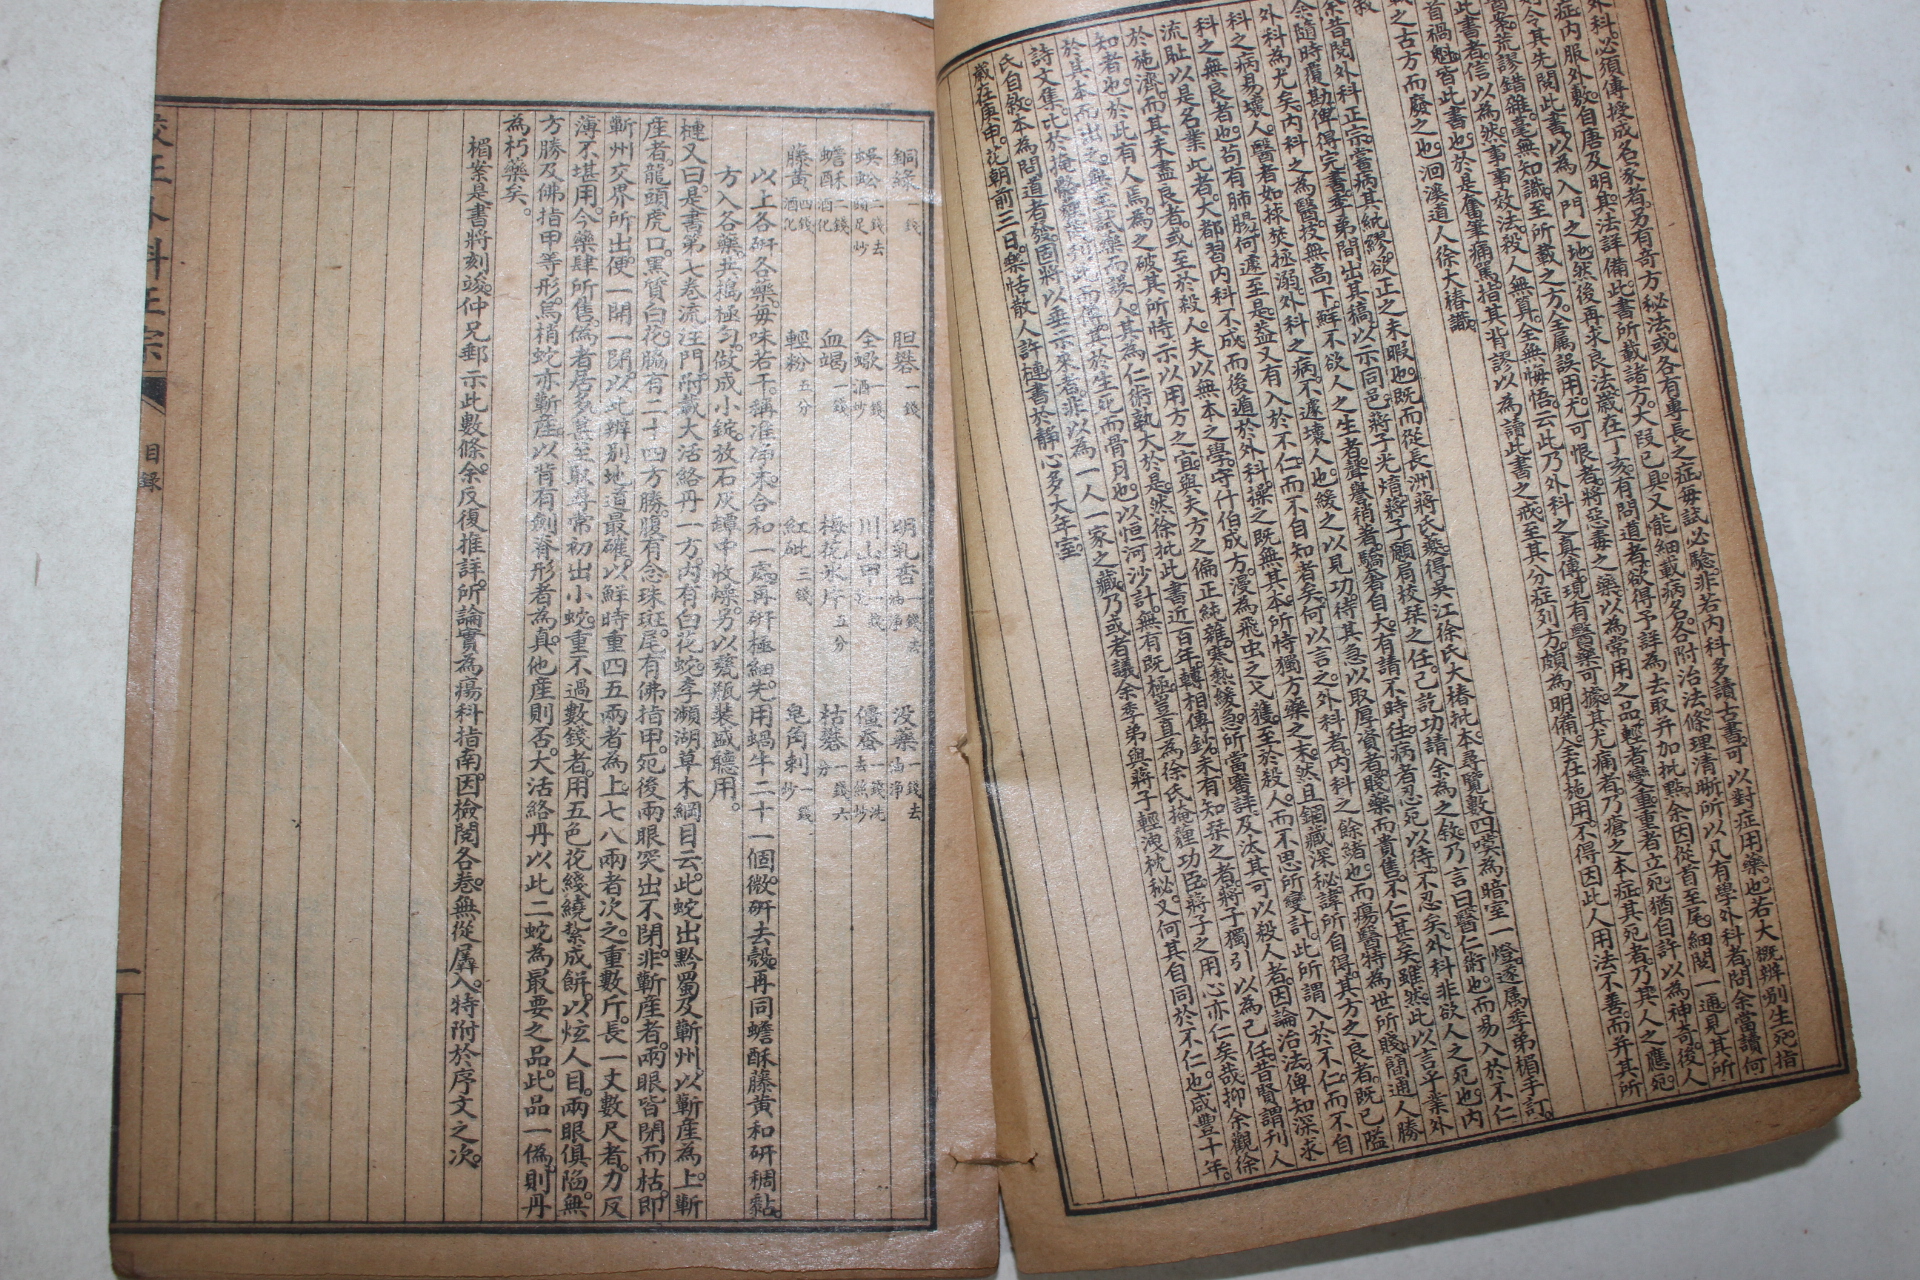 外科必須傳授成名家者另有奇方秘法或各有專長之症每試必驗非若內科多讀古書可以對症用藥也若大概辨別生死指
症內服外敷自唐及明其法詳備此書所載諸方大段已具又能細載病名各附治法條理清晰所以凡有學外科者問余當讀何
令其先閱此書以為入門之地然後再求良法歲在丁亥有問道者欲得予詳為去取并加批點余因從首至尾細閱一通見其所
荒謬錯雜毫無知識至所載之方全屬誤用尤可恨者將惡毒之藥以為常用之品輕者變重重者立死猶自許以為神奇後人
此書者信以為然事事效法殺人無算全無悔悟云此乃外科之真傳現有醫藥可據其尤痛者乃瘡之本症其死者乃其人之應死
首禍魁皆此書也於是奮筆痛罵指其背謬以為讀此書之戒至其分症列方頗為明備全在施用不得因此人用法不善而并其所
載之古方而廢之也洄溪道人徐大椿識
敘
余昔閱外科正宗嘗病其紕繆欲正之未暇也既而從長洲蔣氏處得吳江徐氏大椿批本尋覽數四嘆為暗室一燈遂屬季弟楣手訂
余隨時覆勘俾得完書季弟間出其稿以示同邑蔣子光焴蔣子願局校栞之任已訖功請余為之敘乃言曰醫仁術也而易入於不仁
外科為尤矣內科之為醫技無高下鮮不欲人之生者聲譽稍著驕矜自大有請不時往病者忍死以待不忍矣外科非欲人之死也內
科之病易壞人醫者如捄焚拯溺外科之病不遽壞人也緩之以見功待其急以取厚貲者賤藥而貴售不仁甚矣雖然此以言乎業外
科之無良者也苟有肺腸何遽至是蓋又有入於不仁而不自知者矣何以言之外科者內科之餘緒也而瘍醫特為世所賤簡通人勝
流恥以是名業此者大都習內科不成而後遁於外科操之既無其本所恃獨方藥之末然且錮藏深秘諱所自得其方之良者既已隘
於施濟而其未盡良者或至於殺人夫以無本之學守什伯成方漫為飛虫之弋獲至於殺人而不思所變計此所謂入於不仁而不自
知者也於此有人焉為之破其所恃示以用方之宜與夫方之偏正純雜寒熱緩急所當審詳及汰其可以殺人者因論治法俾知深求
於其本而出之無至試藥而誤人其為仁術孰大於是然徐批此書近百年轉相傳鈔未有知栞之者蔣子獨引以為己任昔賢謂刊人
詩文集比於掩骼
於生死而骨肉也以恒河沙計無有既極豈直為徐氏掩貍功臣蔣子之用心亦仁矣哉抑余觀徐
氏自敘本為問道者發固將以垂示來者非以為一人一家之藏乃或者議余季弟與蔣子輕洩枕秘又何其自同於不仁也咸豐十年
歲在庚申花朝前三日樂恬散人許槤書於靜心多大年室
銅綠一錢 胆礬一錢 明乳香一錢去油淨 没藥一錢去油淨
蜈蚣二錢去頭足炒 全蠍一錢酒炒 川山甲 僵蠶一錢洗去絲炒
蟾酥二錢酒化 血竭一錢 梅花氷片五分 枯礬一錢六分
藤黃四錢酒化 輕粉五分 紅砒三錢 皂角刺一錢炒
以上各研各藥每味若干稱准淨末合和一處再研極細先用蝸牛二十一個微研去殼再同蟾酥藤黃和研稠黏
方入各藥共搗極勻做成小錠放石灰罈中收燥另以甆瓶裝盛聽用
槤又曰是書第七卷流注門附載大活絡丹一方內有白花蛇李瀕湖草木綱目云此蛇出黔蜀及蘄州以蘄產為上蘄
產者龍頭虎口黑質白花脇有二十四方勝腹有念珠斑尾有佛指甲死後兩眼突出不閉非蘄產者兩眼皆閉而枯即
蘄州交界所出便一開一閉以此辨別地道最確以鮮時重四五兩者為上七八兩者次之重數斤長一丈數尺者力反
薄不堪用今藥肆所售偽者居多甚至取尋常初出小蛇重不過數錢者用五色花綫繞紮成餅以炫人目兩眼俱陷無
方勝及佛指甲等形烏梢蛇亦蘄產以背有劍脊形者為真他產則否大活絡丹以此二蛇為最要之品此品一偽則丹
為朽藥矣
楣案是書將刻竣仲兄郵示此數條余反復推詳所論實為瘍科指南因檢閱各卷無從羼入特附於序文之次
校正外科正宗 目錄 一